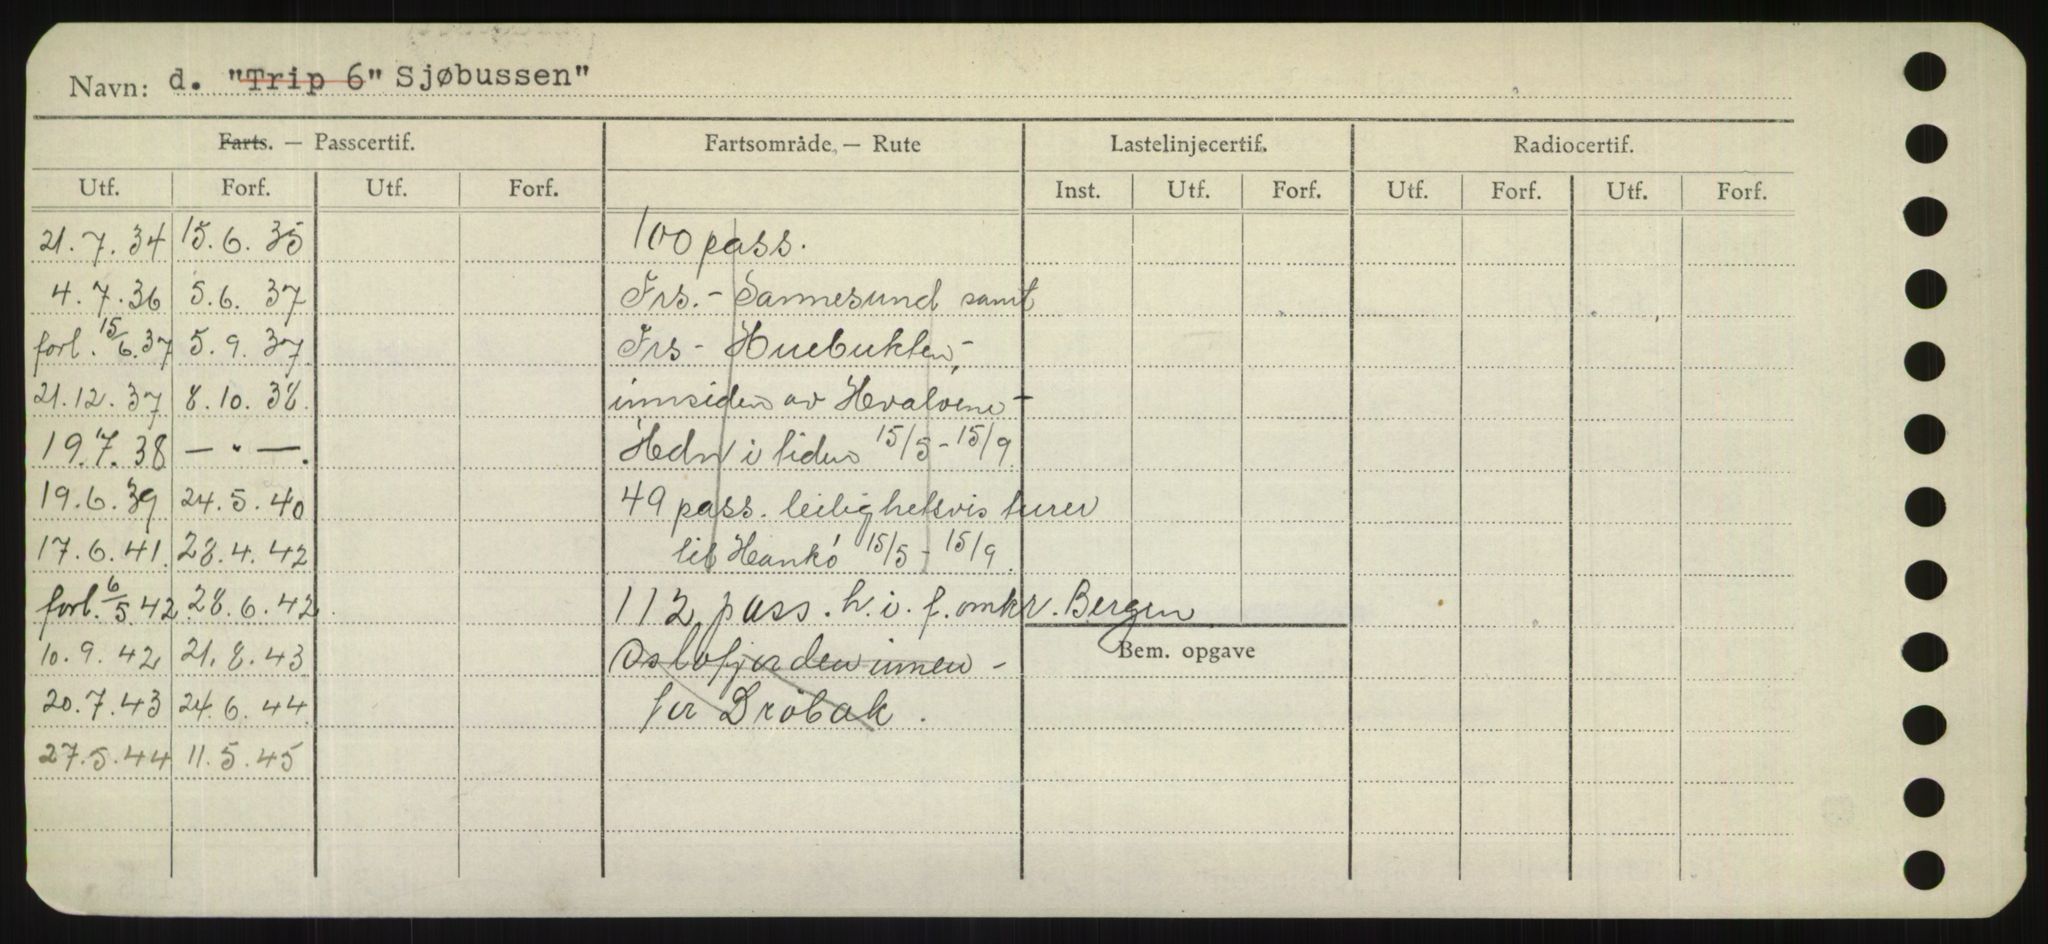 Navn: d. "Trip 6" Sjøbussen"
Farts. — Passcertif. Fartsområde. — Rute Lastelinjecertif. Radiocertif.
Utf. Forf. Utf. Forf. Inst. Utf. Forf. Utf. Forf. Utf. Forf.
21.7.34 15.6.35 100 pass.
4.7.36 5.6.37 Frs. - Sannesund samt
forl. 15/6.37 5.9.37 Frs - Huebukten,-
21.12.37 8.10.38. innsiden av Hvalorene -
19.7.38 — " —. Hdn i tiden 15/5 - 15/9
19.6.39 24.5.40 49 pass. leilighetsvis turer
17.6.41. 28.4.42 til Hankö 15/5 - 15/9.
forl. 6/5.42 28.6.42. 112 pass. h.i.f. omkr. Bergen
10.9.42 21.8.43 Oslofjorden innen- Bem. opgave
20.7.43 24.6.44 for Dröbak.
27.5.44 11.5.45